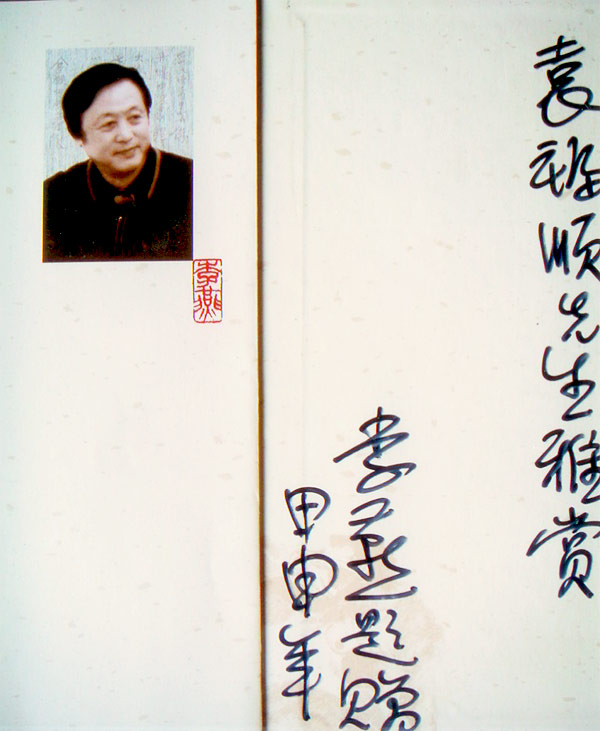 袁顺先生雅赏
李燕题赠
甲申年
李燕